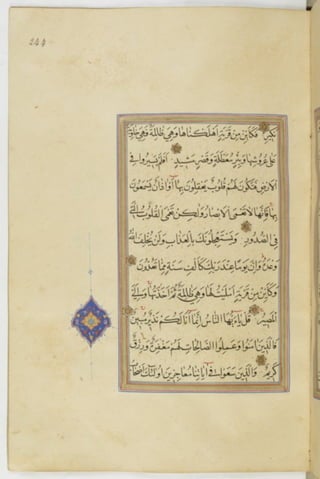 ۲۴۴
نكير فكأين من قرية أهلكناها وهي ظالمة فهي خاوية
على عروشها وبئر معطلة وقصر مشيد أفلم يسيروا في
الأرض فتكون لهم قلوب يعقلون بها أو آذان يسمعون
بها فإنها لا تعمى الأبصار ولكن تعمى القلوب التي
في الصدور ويستعجلونك بالعذاب ولن يخلف الله
وعده وإن يوما عند ربك كألف سنة مما تعدون
وكأين من قرية أمليت لها وهي ظالمة ثم أخذتها وإلي
المصير قل يا أيها الناس إنما أنا لكم نذير مبين
فالذين آمنوا وعملوا الصالحات لهم مغفرة ورزق
كريم والذين سعوا في آياتنا معاجزين أولئك أصحاب